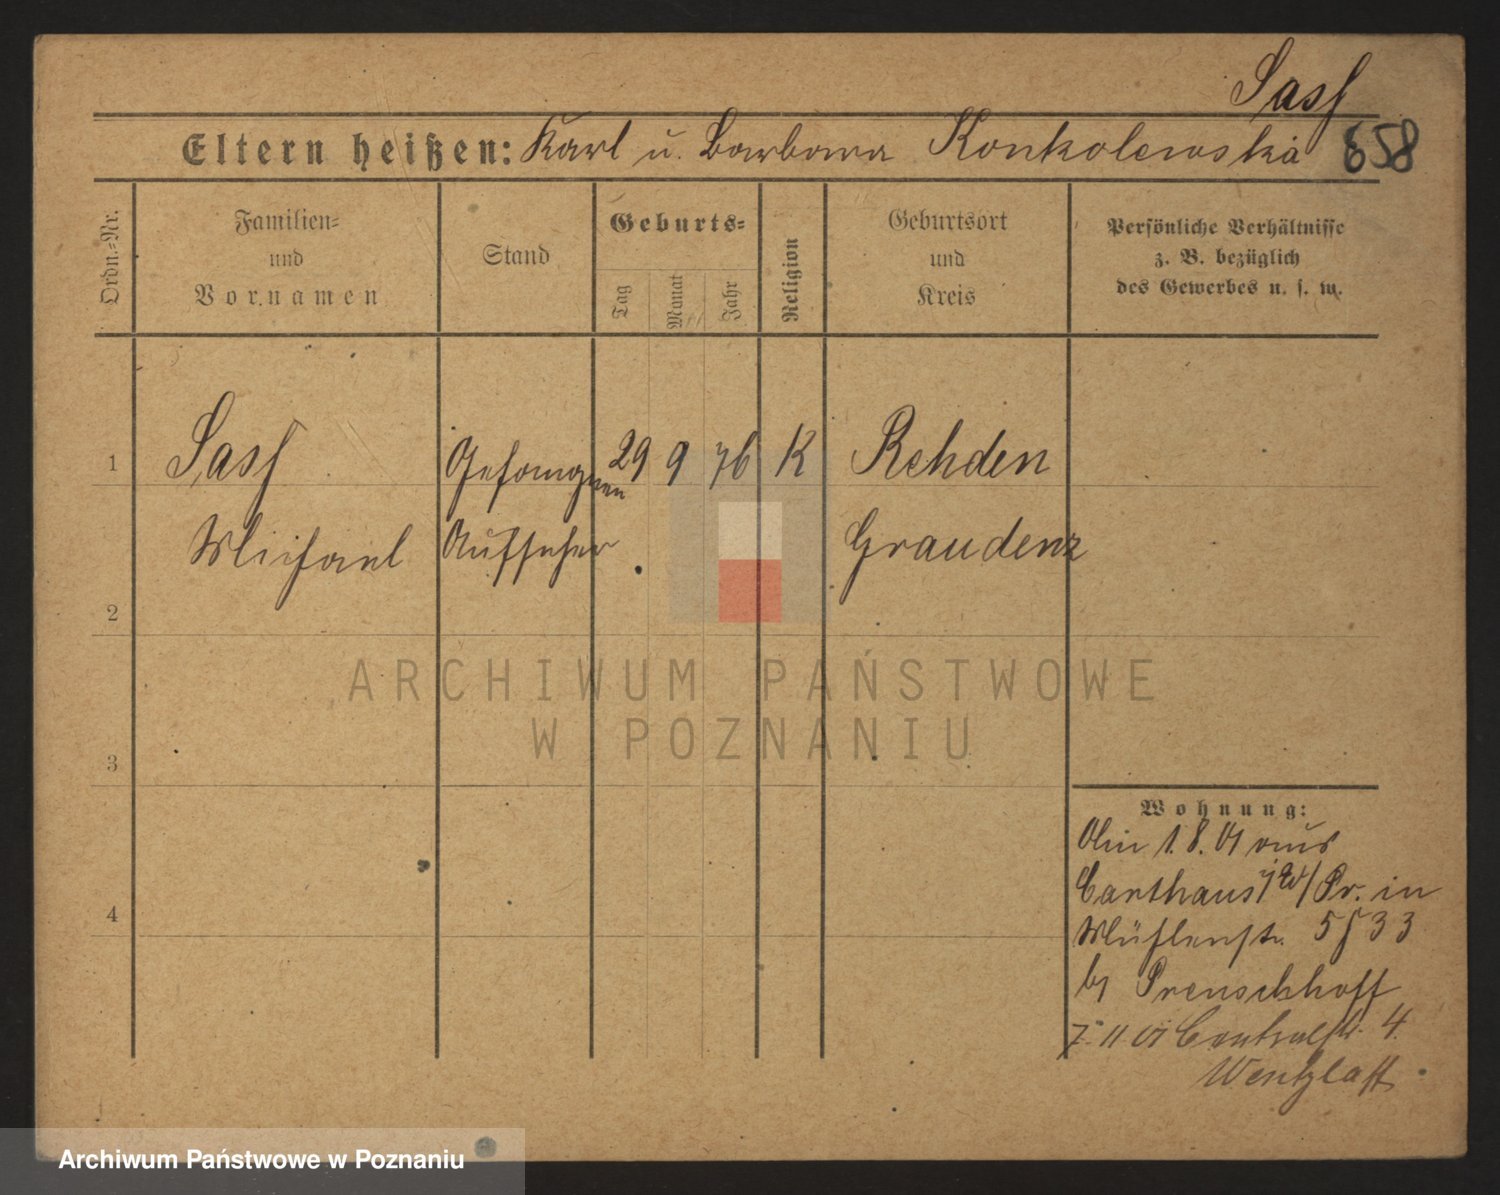 Sass
Eltern heißen: Karl u. Barbara Konkolewska 658
Ordn.=Nr.
Familien=
und
Vornamen
Stand
Geburts=
Tag
Monat
Jahr
Religion
Geburtsort
und
Kreis
Persönliche Verhältnisse
z. B. bezüglich
des Gewerbes u. s. w.
1 Sass Gefangnen 29 9 76 K Rehden
Michael Aufseher Graudenz
2
ARCHIWUM PAŃSTWOWE
W POZNANIU
3
Wohnung:
1. 8. 01 aus
Carthaus W/Pr. in
Mühlenstr. 5 33
by Prenschhoff
4
7. 11 01 Centralstr. 4.
Wentzlaff
Archiwum Państwowe w Poznaniu